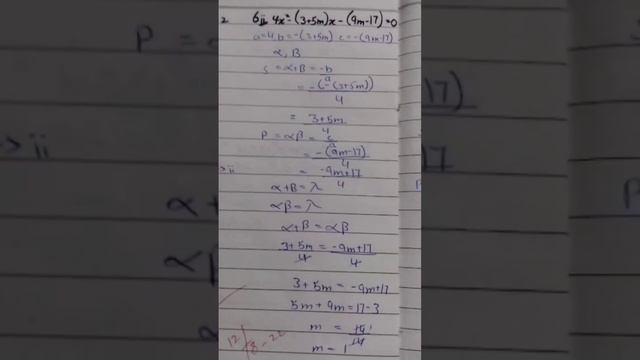 2 6ii 4x² - (3+5m)x - (9m-17) = 0
a=4, b = -(3+5m) c = -(9m-17)
α, β
S = α+β = -b/a
= -(-(3+5m))/4
= 3+5m/4
P = αβ = c/a
= -(9m-17)/4
= -9m+17/4
α+β = λ
αβ = λ
α+β = αβ
3+5m/4 = -9m+17/4
3+5m = -9m+17
5m+9m = 17-3
m = 14/14
m = 1
P =
→ ii
α+
αβ
17)
+17
P